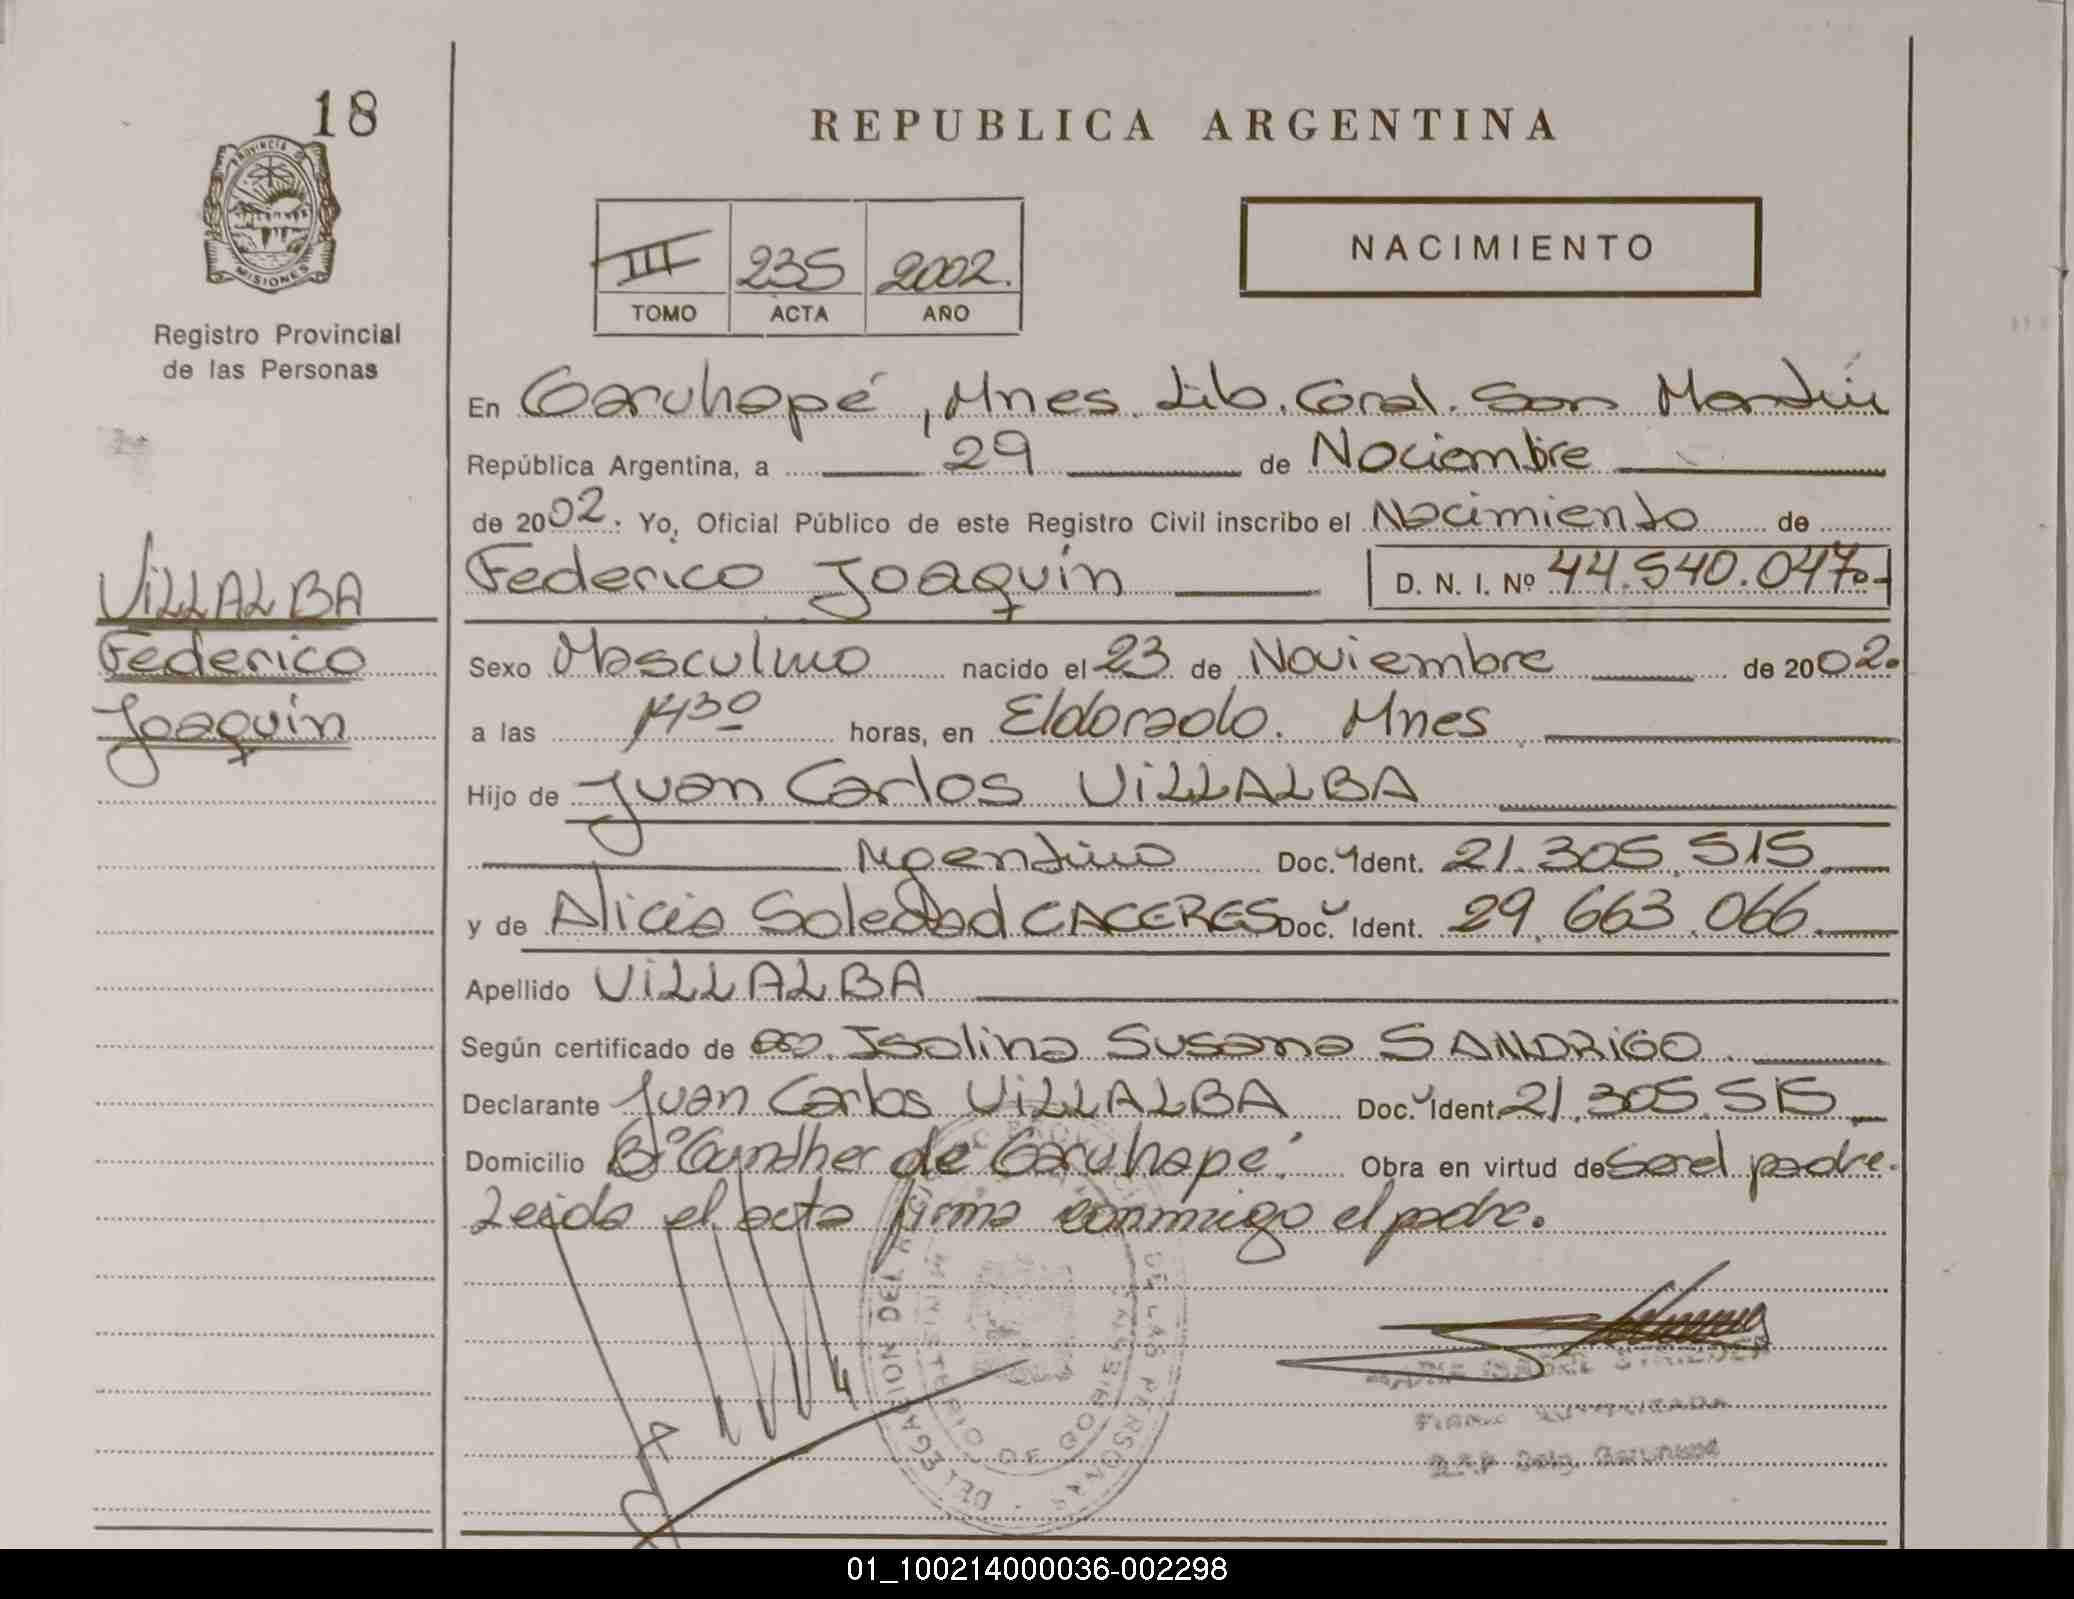 18
PROVINCIA DE
MISIONES
Registro Provincial
de las Personas
VILLALBA
Federico
Joaquín
REPUBLICA ARGENTINA
III 235 2002.
TOMO ACTA AÑO
NACIMIENTO
En Garuhapé, Mnes. Lib. Gral. San Martín
República Argentina, a 29 de Noviembre
de 2002. Yo, Oficial Público de este Registro Civil inscribo el Nacimiento de
Federico Joaquín D. N. I. Nº 44.540.047.-
Sexo Masculino nacido el 23 de Noviembre de 2002.
a las 1430 horas, en Eldorado. Mnes
Hijo de Juan Carlos VILLALBA
Argentino Doc. Ident. 21.305.515
y de Alicia Soledad CACERES Doc. Ident. 29.663.066
Apellido VILLALBA
Según certificado de Isolina Susana SANDRIGO
Declarante Juan Carlos VILLALBA Doc. Ident. 21.305.515
Domicilio Bº Gunther de Garuhapé Obra en virtud de Ser el padre.
Leida el acta firma conmigo el padre.
DELEGACION DEL REGISTRO DE LAS PERSONAS
MINISTERIO DE GOBIERNO
01_100214000036-002298